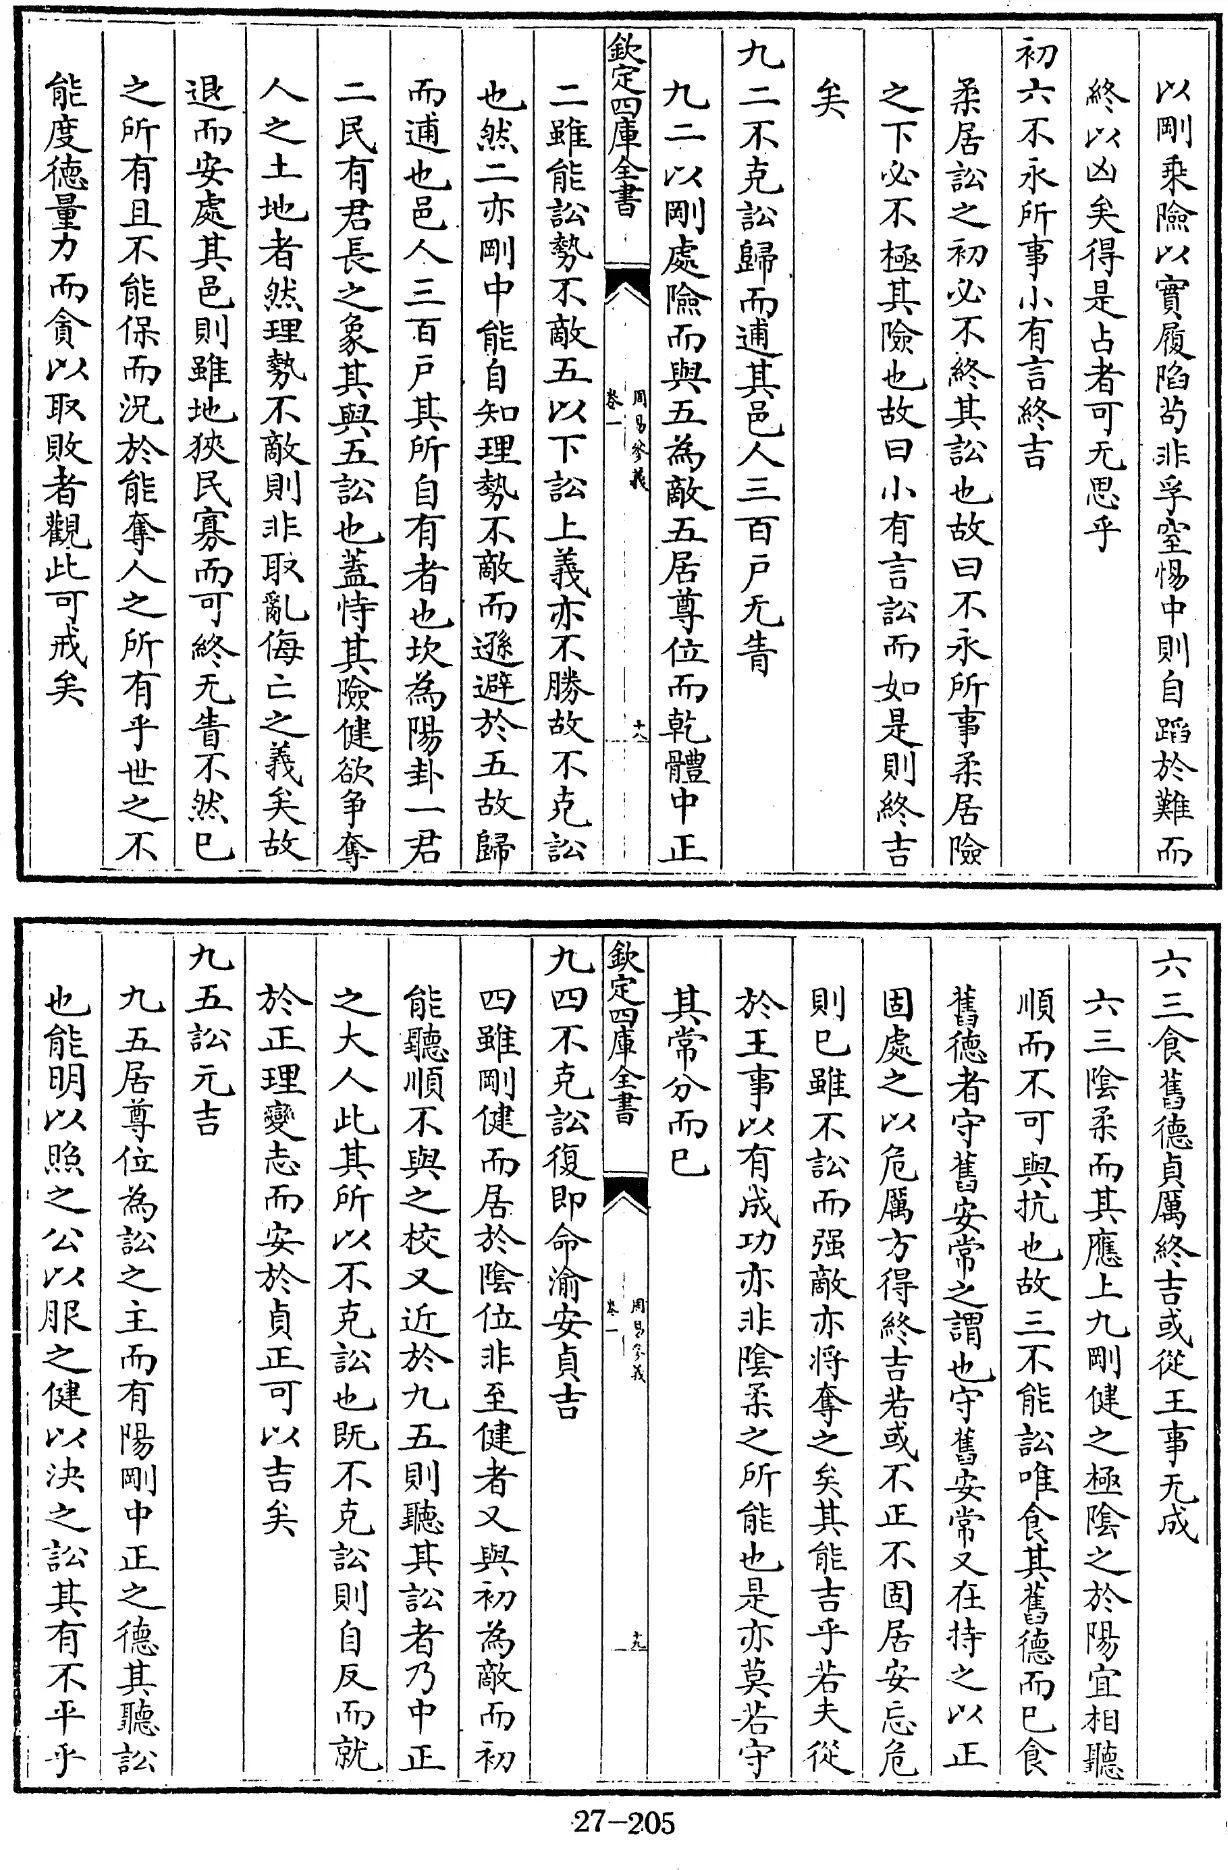 以剛乘險以實履陷苟非孚窒惕中則自蹈於難而
終以凶矣得是占者可无思乎
初六不永所事小有言終吉
柔居訟之初必不終其訟也故曰不永所事柔居險
之下必不極其險也故曰小有言訟而如是則終吉
矣
九二不克訟歸而逋其邑人三百戸无眚
九二以剛處險而與五為敵五居尊位而乾體中正
欽定四庫全書
周易參義
卷一
十八
二雖能訟勢不敵五以下訟上義亦不勝故不克訟
也然二亦剛中能自知理勢不敵而遜避於五故歸
而逋也邑人三百戸其所自有者也坎為陽卦一君
二民有君長之象其與五訟也蓋恃其險健欲争奪
人之土地者然理勢不敵則非取亂侮亡之義矣故
退而安處其邑則雖地狹民寡而可終无眚不然已
之所有且不能保而況於能奪人之所有乎世之不
能度德量力而貪以取敗者觀此可戒矣
六三食舊德貞厲終吉或從王事无成
六三陰柔而其應上九剛健之極陰之於陽宜相聽
順而不可與抗也故三不能訟唯食其舊德而已食
舊德者守舊安常之謂也守舊安常又在持之以正
固處之以危厲方得終吉若或不正不固居安忘危
則已雖不訟而强敵亦将奪之矣其能吉乎若夫從
於王事以有成功亦非陰柔之所能也是亦莫若守
其常分而已
欽定四庫全書
周易參義
卷一
十九
九四不克訟復即命渝安貞吉
四雖剛健而居於陰位非至健者又與初為敵而初
能聽順不與之校又近於九五則聽其訟者乃中正
之大人此其所以不克訟也既不克訟則自反而就
於正理變志而安於貞正可以吉矣
九五訟元吉
九五居尊位為訟之主而有陽剛中正之德其聽訟
也能明以照之公以服之健以決之訟其有不平乎
27-205